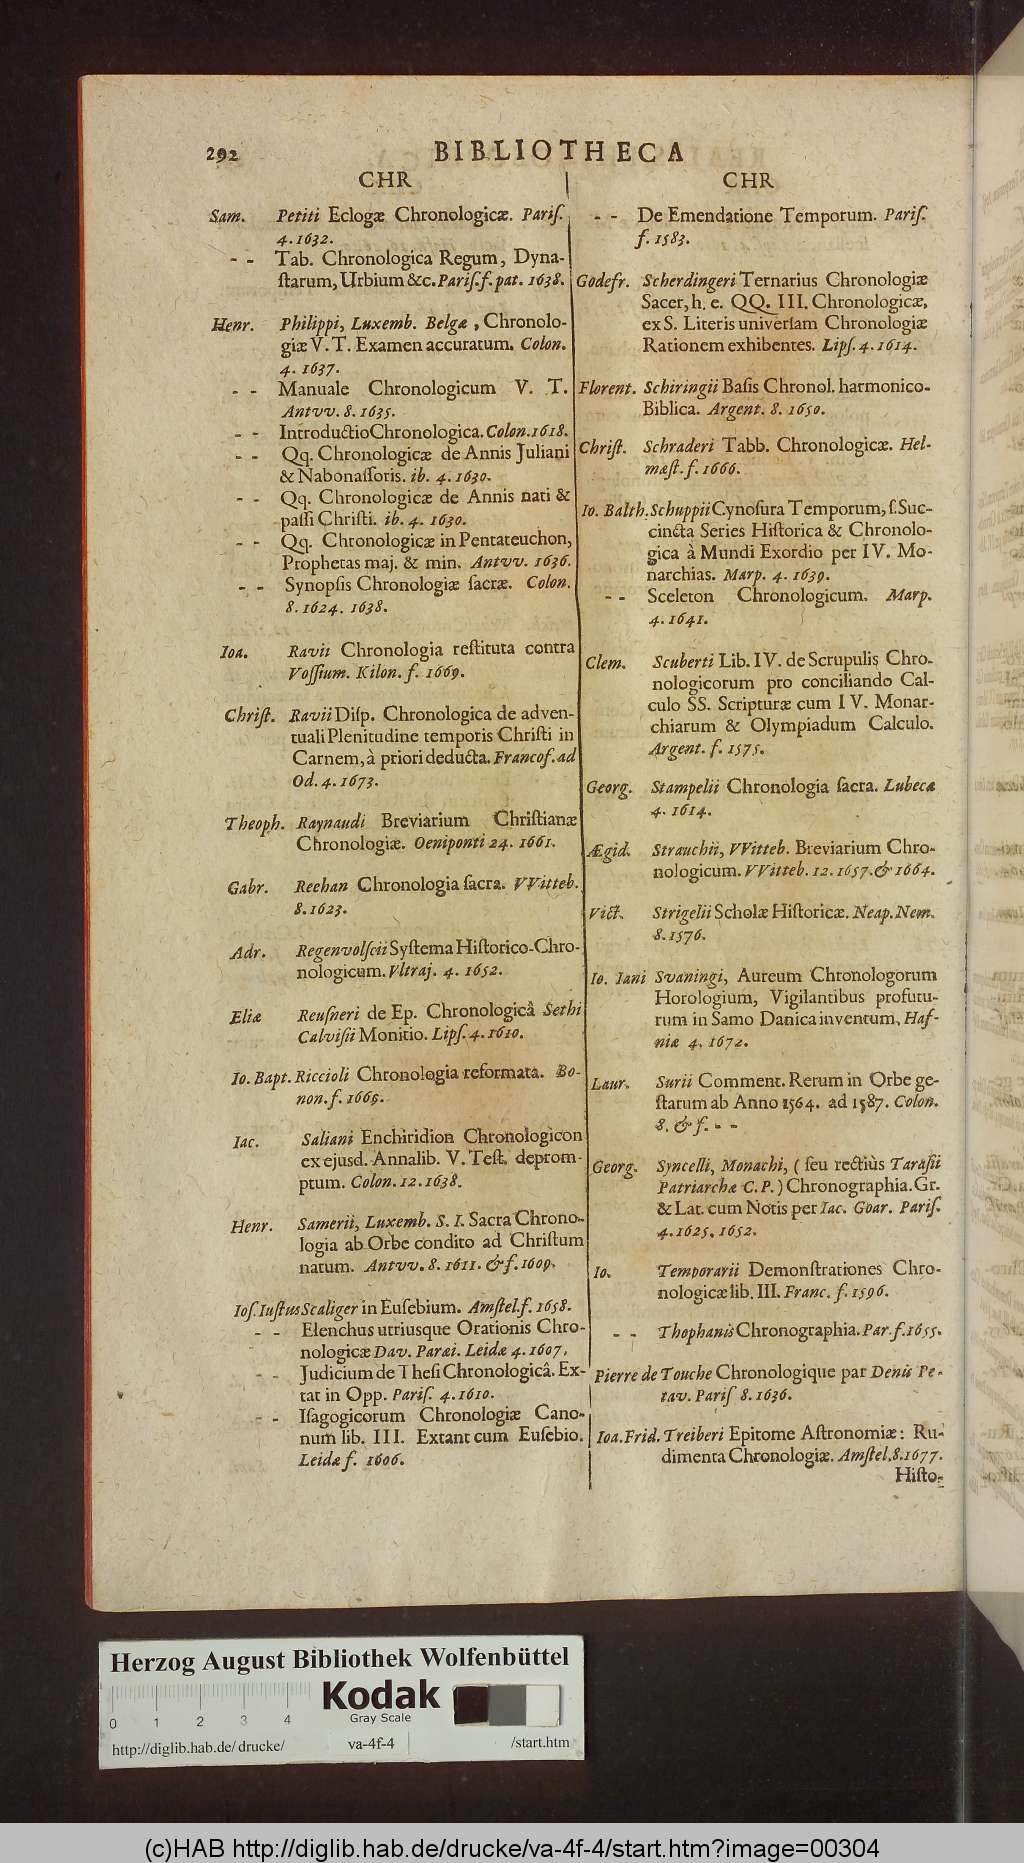 292
BIBLIOTHECA
CHR
Sam. Petiti Eclogæ Chronologicæ. Pariſ.
4. 1632.
- - Tab. Chronologica Regum, Dyna-
ſtarum, Urbium &c. Pariſ. f. pat. 1638.
Henr. Philippi, Luxemb. Belgæ, Chronolo-
giæ V. T. Examen accuratum. Colon.
4. 1637.
- - Manuale Chronologicum V. T.
Antvv. 8. 1635.
- - Introductio Chronologica. Colon. 1618.
- - Qq. Chronologicæ de Annis Juliani
& Nabonaſſoris. ib. 4. 1630.
- - Qq. Chronologicæ de Annis nati &
paſſi Chriſti. ib. 4. 1630.
- - Qq. Chronologicæ in Pentateuchon,
Prophetas maj. & min. Antvv. 1636.
- - Synopſis Chronologiæ ſacræ. Colon.
8. 1624. 1638.
Ioa. Ravii Chronologia reſtituta contra
Voſſium. Kilon. f. 1669.
Chriſt. Ravii Diſp. Chronologica de adven-
tuali Plenitudine temporis Chriſti in
Carnem, à priori deducta. Francof. ad
Od. 4. 1673.
Theoph. Raynaudi Breviarium Chriſtianæ
Chronologiæ. Oeniponti 24. 1661.
Gabr. Reehan Chronologia ſacra. VVitteb.
8. 1623.
Adr. Regenvolſcii Syſtema Hiſtorico-Chro-
nologicum. Vltraj. 4. 1652.
Eliæ Reuſneri de Ep. Chronologicâ Sethi
Calviſii Monitio. Lipſ. 4. 1610.
Io. Bapt. Riccioli Chronologia reformata. Bo-
non. f. 1669.
Iac. Saliani Enchiridion Chronologicon
ex ejusd. Annalib. V. Teſt. deprom-
ptum. Colon. 12. 1638.
Henr. Samerii, Luxemb. S. I. Sacra Chrono-
logia ab Orbe condito ad Chriſtum
natum. Antvv. 8. 1611. & f. 1609.
Ioſ. Iuſtus Scaliger in Euſebium. Amſtel. f. 1658.
- - Elenchus utriusque Orationis Chro-
nologicæ Dav. Paræi. Leidæ 4. 1607.
- - Judicium de Theſi Chronologicâ. Ex-
tat in Opp. Pariſ. 4. 1610.
- - Iſagogicorum Chronologiæ Cano-
num lib. III. Extant cum Euſebio.
Leidæ f. 1606.
CHR
- - De Emendatione Temporum. Pariſ.
f. 1583.
Godefr. Scherdingeri Ternarius Chronologiæ
Sacer, h. e. QQ. III. Chronologicæ,
ex S. Literis univerſam Chronologiæ
Rationem exhibentes. Lipſ. 4. 1614.
Florent. Schiringii Baſis Chronol. harmonico-
Biblica. Argent. 8. 1650.
Chriſt. Schraderi Tabb. Chronologicæ. Hel-
mæſt. f. 1666.
Io. Balth. Schuppii Cynoſura Temporum, ſ. Suc-
cincta Series Hiſtorica & Chronolo-
gica à Mundi Exordio per IV. Mo-
narchias. Marp. 4. 1639.
- - Sceleton Chronologicum. Marp.
4. 1641.
Clem. Scuberti Lib. IV. de Scrupulis Chro-
nologicorum pro conciliando Cal-
culo SS. Scripturæ cum IV. Monar-
chiarum & Olympiadum Calculo.
Argent. f. 1575.
Georg. Stampelii Chronologia ſacra. Lubecæ
4. 1614.
Ægid. Strauchii, VVitteb. Breviarium Chro-
nologicum. VVitteb. 12. 1657. & 1664.
Vict. Strigelii Scholæ Hiſtoricæ. Neap. Nem.
8. 1576.
Io. Iani Svaningi, Aureum Chronologorum
Horologium, Vigilantibus profutu-
rum in Samo Danica inventum, Haf-
niæ 4. 1672.
Laur. Surii Comment. Rerum in Orbe ge-
ſtarum ab Anno 1564. ad 1587. Colon.
8. & f. - -
Georg. Syncelli, Monachi, ( ſeu rectiùs Taraſii
Patriarchæ C. P. ) Chronographia. Gr.
& Lat. cum Notis per Iac. Goar. Pariſ.
4. 1625. 1652.
Io. Temporarii Demonſtrationes Chro-
nologicæ lib. III. Franc. f. 1596.
- - Thophanis Chronographia. Par. f. 1655.
Pierre de Touche Chronologique par Denis Pe-
tav. Pariſ 8. 1636.
Ioa. Frid. Treiberi Epitome Aſtronomiæ: Ru-
dimenta Chronologiæ. Amſtel. 8. 1677.
Hiſto-
Herzog August Bibliothek Wolfenbüttel
Kodak
Gray Scale
0 1 2 3 4
http://diglib.hab.de/drucke/ va-4f-4 /start.htm
(c)HAB http://diglib.hab.de/drucke/va-4f-4/start.htm?image=00304